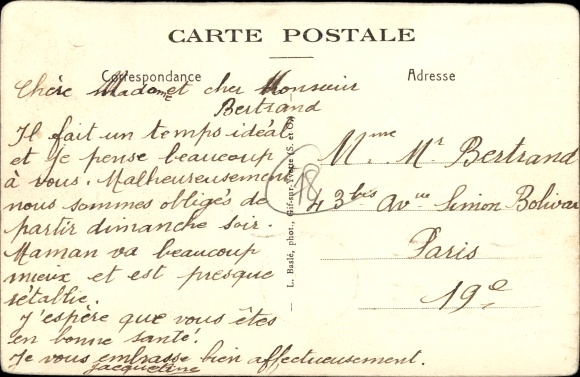 CARTE POSTALE
Correspondance
Adresse
Chère Madame et cher Monsieur
Bertrand
Il fait un temps idéal
et je pense beaucoup
à vous. Malheureusement
nous sommes obligés de
partir dimanche soir.
Maman va beaucoup
mieux et est presque
rétablie.
J'espère que vous êtes
en bonne santé.
Je vous embrasse bien affectueusement.
Jacqueline
L. Baslé, phot., Gif-sur-Yvette (S. et O.)
18
Mme. Mr Bertrand
43bis Avue Simon Bolivar
Paris
19e